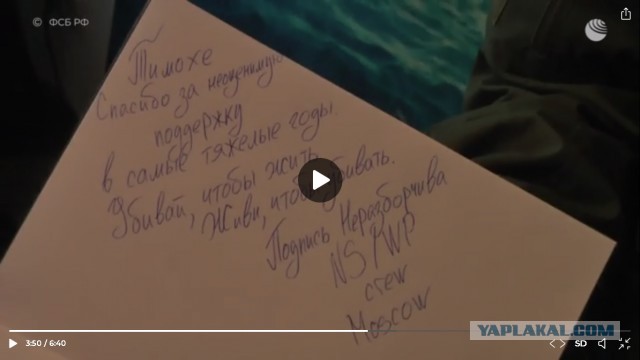 © ФСБ РФ
Тимохе
Спасибо за неоценимую
поддержку
в самые тяжелые годы.
Убивай, чтобы жить
Живи, чтобы убивать.
Подпись Неразборчива
NS/WP
crew
Moscow
YAPLAKAL.COM
3:50 / 6:40
SD